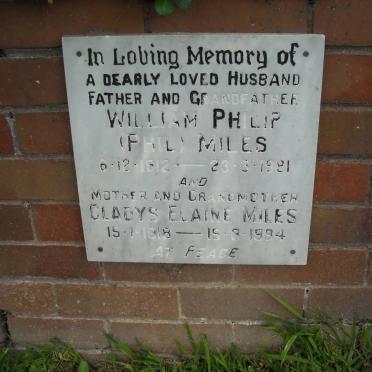 In Loving Memory of
A DEARLY LOVED HUSBAND
FATHER AND GRANDFATHER
WILLIAM PHILIP
(PHIL) MILES
6-12-1912 — 23-3-1991
AND
MOTHER AND GRANDMOTHER
GLADYS ELAINE MILES
15-1-1918 — 15-3-1994
AT PEACE